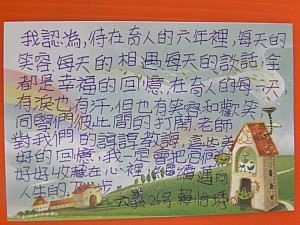 我認為,待在奇人的六年裡,每天的
笑容每天的相遇,每天的談話,全
都是幸福的回憶,在奇人的每一天,
有淚也有汗,但也有笑容和歡笑
同學們彼此間的打鬧,老師
對我們的諄諄教誨,這些美
好的回憶,我一定會把它們
好好收藏在心裡,繼續邁向
人生的下一步
六義26号 賴怡